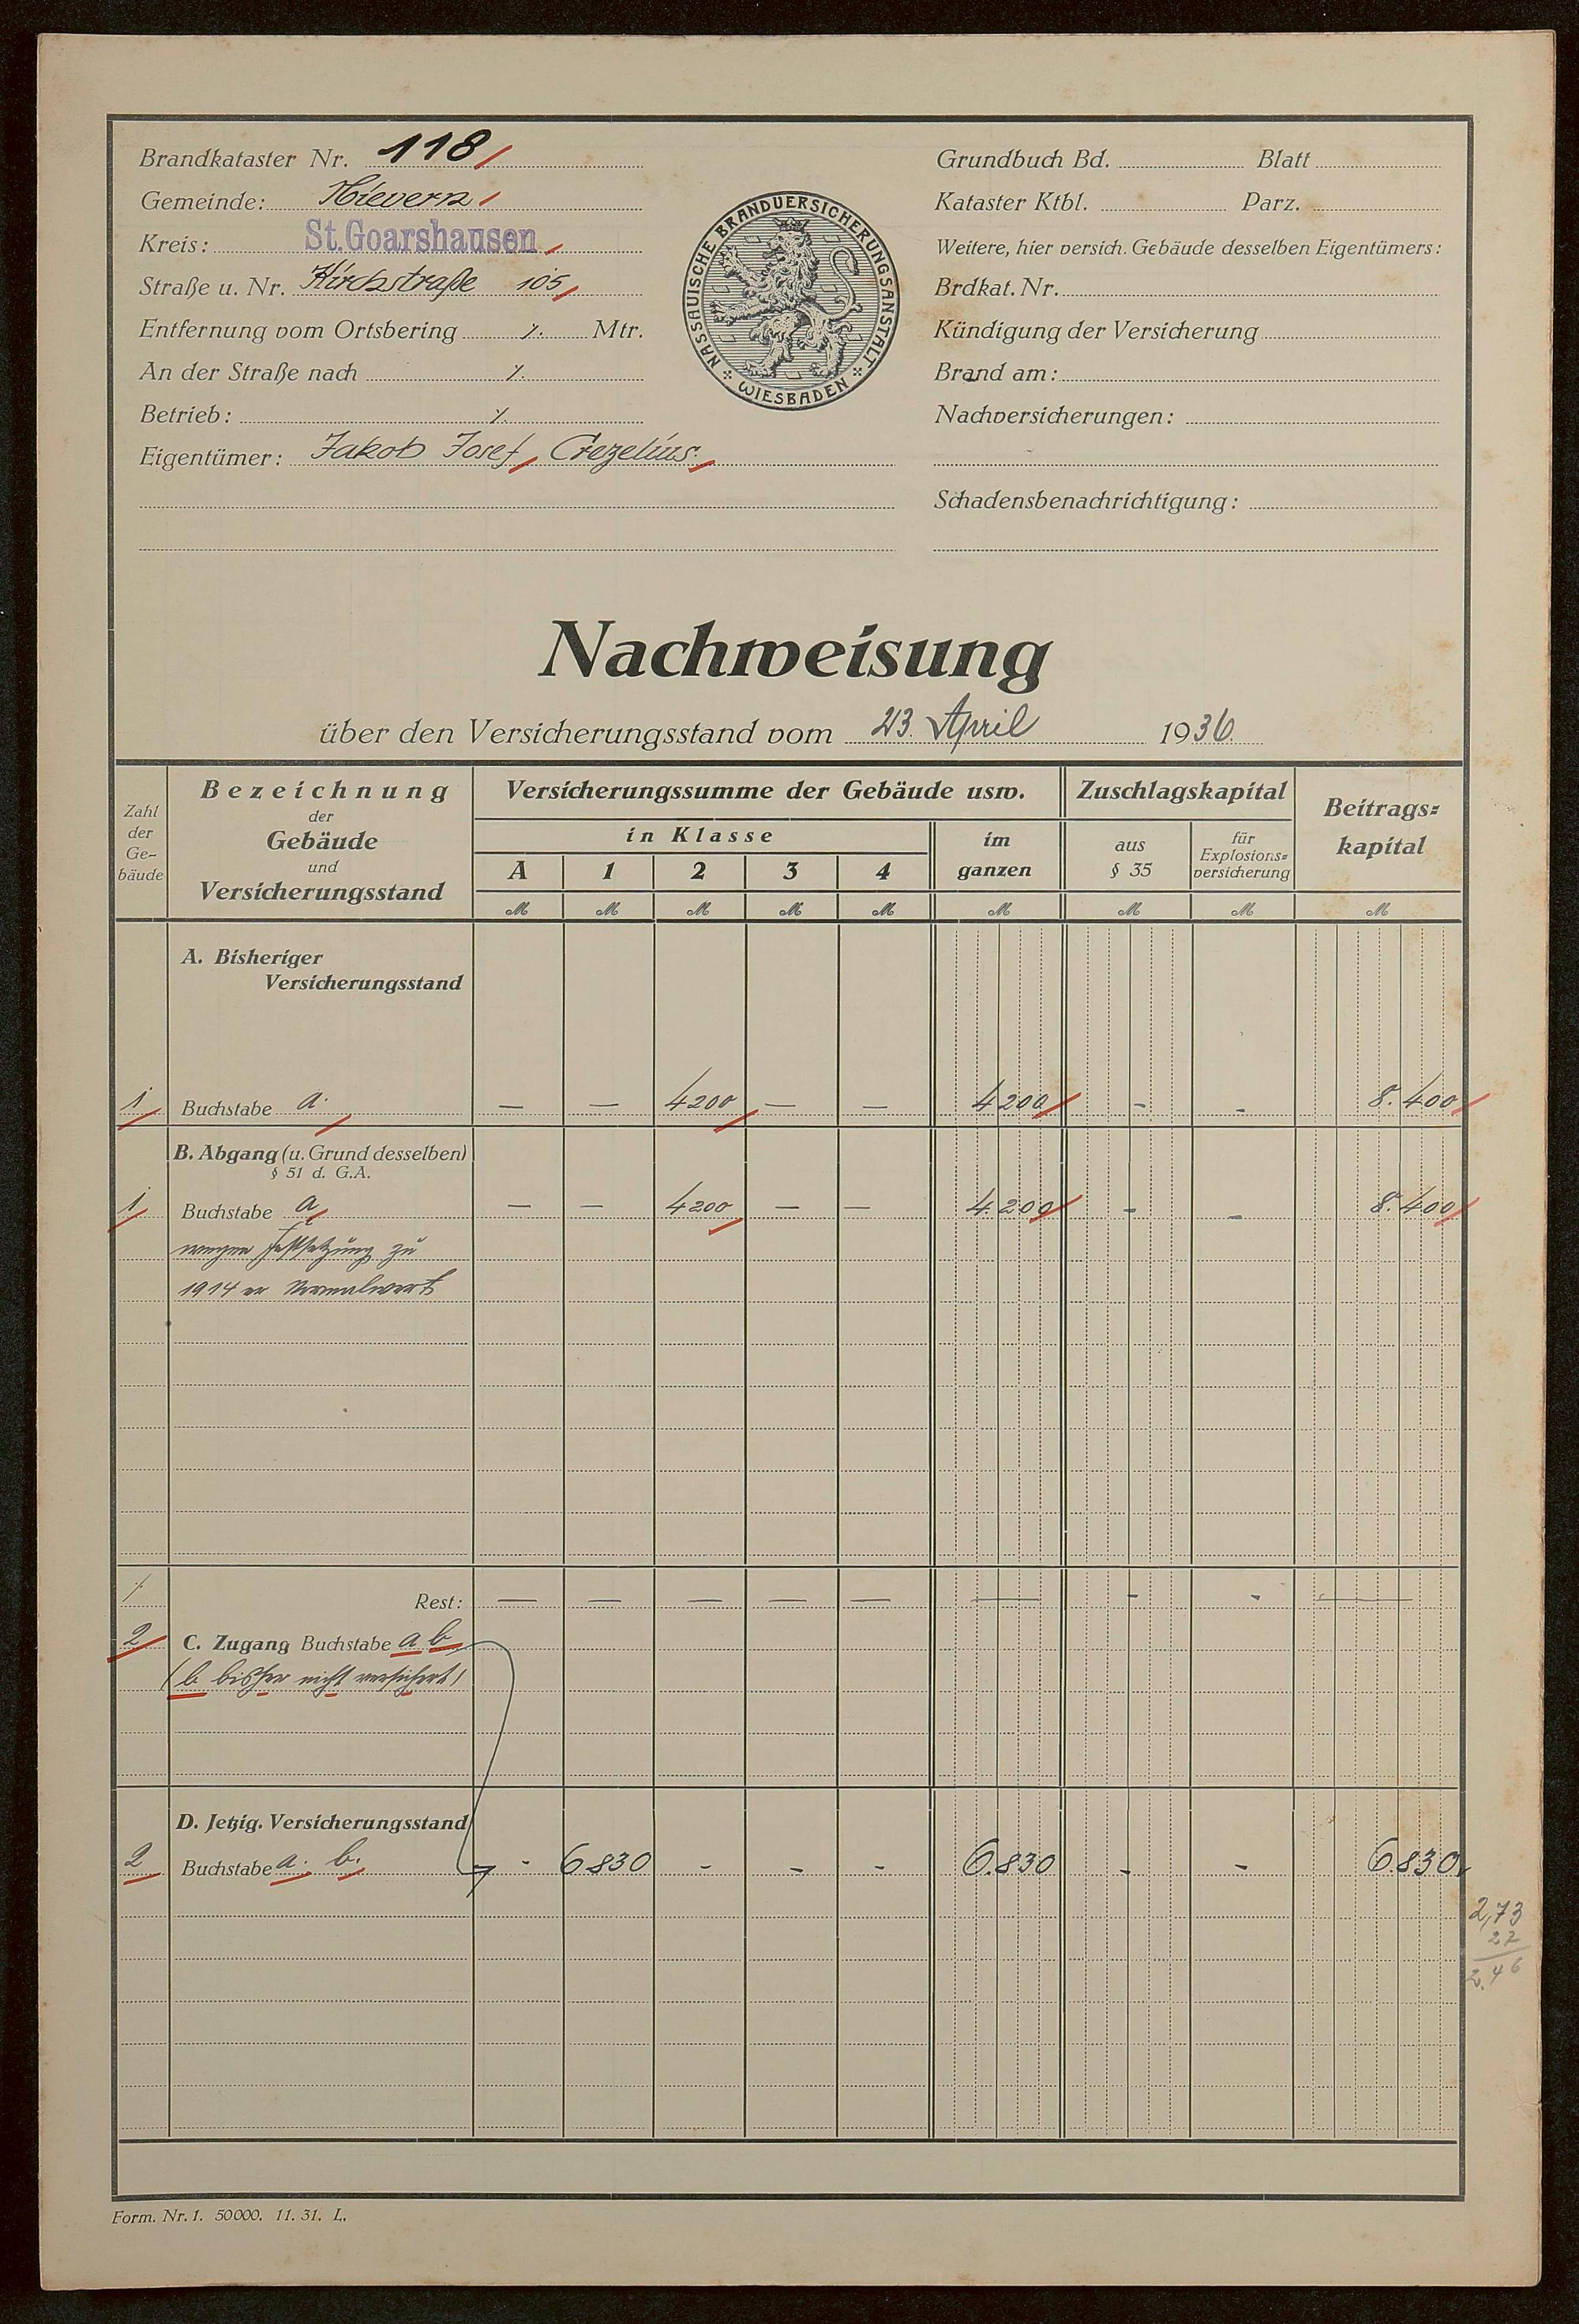 Brandkataster Nr. 118
Gemeinde: Nievern
Kreis: St. Goarshausen
Straße u. Nr. Kirchstraße 105
Entfernung vom Ortsbering ·/. Mtr.
An der Straße nach ·/.
Betrieb: ·/.
Eigentümer: Jakob Josef, Crezelius.
NASSAUISCHE BRANDVERSICHERUNGSANSTALT
WIESBADEN
Grundbuch Bd. Blatt
Kataster Ktbl. Parz.
Weitere, hier versich. Gebäude desselben Eigentümers:
Brdkat. Nr.
Kündigung der Versicherung
Brand am:
Nachversicherungen:
Schadensbenachrichtigung:
Nachweisung
über den Versicherungsstand vom 23. April 1936.
Zahl der Ge-bäude
Bezeichnung der Gebäude und Versicherungsstand
Versicherungssumme der Gebäude usw.
in Klasse
A 1 2 3 4
im ganzen
Zuschlagskapital
aus § 35
für Explosions-versicherung
Beitrags-kapital
M M M M M M M M M
A. Bisheriger
Versicherungsstand
1 Buchstabe a. — — 4200 — — 4200 - - 8.400
B. Abgang (u. Grund desselben)
§ 51 d. G.A.
1 Buchstabe a — — 4200 — — 4.200 - - 8.400
wegen Festsetzung zu
1914 er Normalwert
/ Rest: — — — — — — - - —
2 C. Zugang Buchstabe a b
(b bisher nicht versichert)
D. Jetzig. Versicherungsstand
2 Buchstabe a. b. - 6830 - - - 6.830 - - 6.830
2,73
27
2.46
Form. Nr. 1. 50000. 11. 31. L.